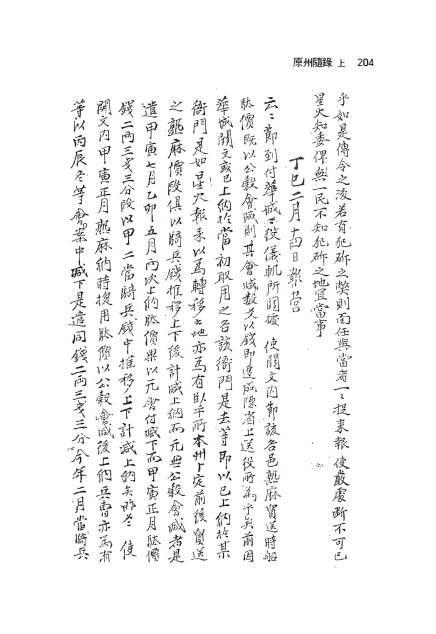 原州隨錄 上 204
乎如是傳令之後若有犯斫之弊則面任與當者一〻捉來報 使嚴處斷不可已
星火知委俾無一民不知犯斫之地宜當事
丁巳二月十四日報營
云〻節到付華城 役儀軌所關 使關文內節該各邑熟麻貿送時船
駄價旣以公穀會減則其會減數又以錢卽速成陳省上送役所爲乎矣前因
華城關文或已上納於當初取用之各該衙門是去等卽以已上納於某
衙門是如星火報來以爲轉移之地亦爲有臥乎所本州卜定前後貿送
之熟麻價段俱以騎兵錢推移上下後計減上納而元無公穀會減者是
遣甲寅七月乙卯五月兩次上納駄價果以元會付減下而甲寅正月駄價
錢二兩三戔三分段以甲二當騎兵錢中推移上下計減上納矣昨冬 使
關文內甲寅正月熟麻納時換用駄價以公穀會減後上納兵曹亦爲有
等以丙辰冬等會案中減下是遣同錢二兩三戔三分今年二月當騎兵